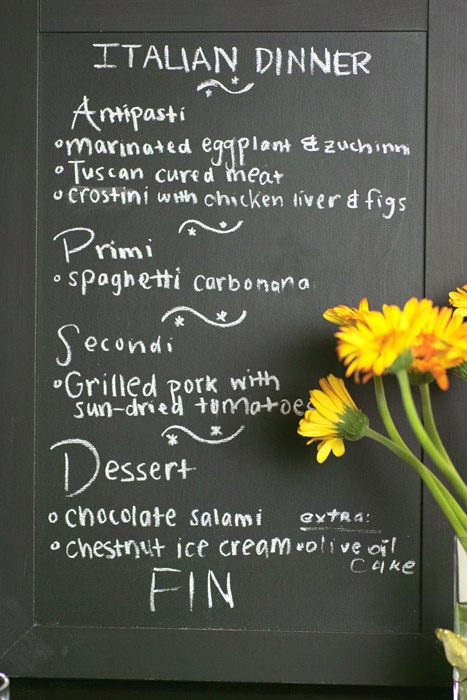 ITALIAN DINNER
Antipasti
• marinated eggplant & zuchinni
• Tuscan cured meat
• crostini with chicken liver & figs
Primi
• spaghetti carbonara
Secondi
• Grilled pork with
sun-dried tomatoes
Dessert
• chocolate salami
extra:
• chestnut ice cream • olive oil
cake
FIN